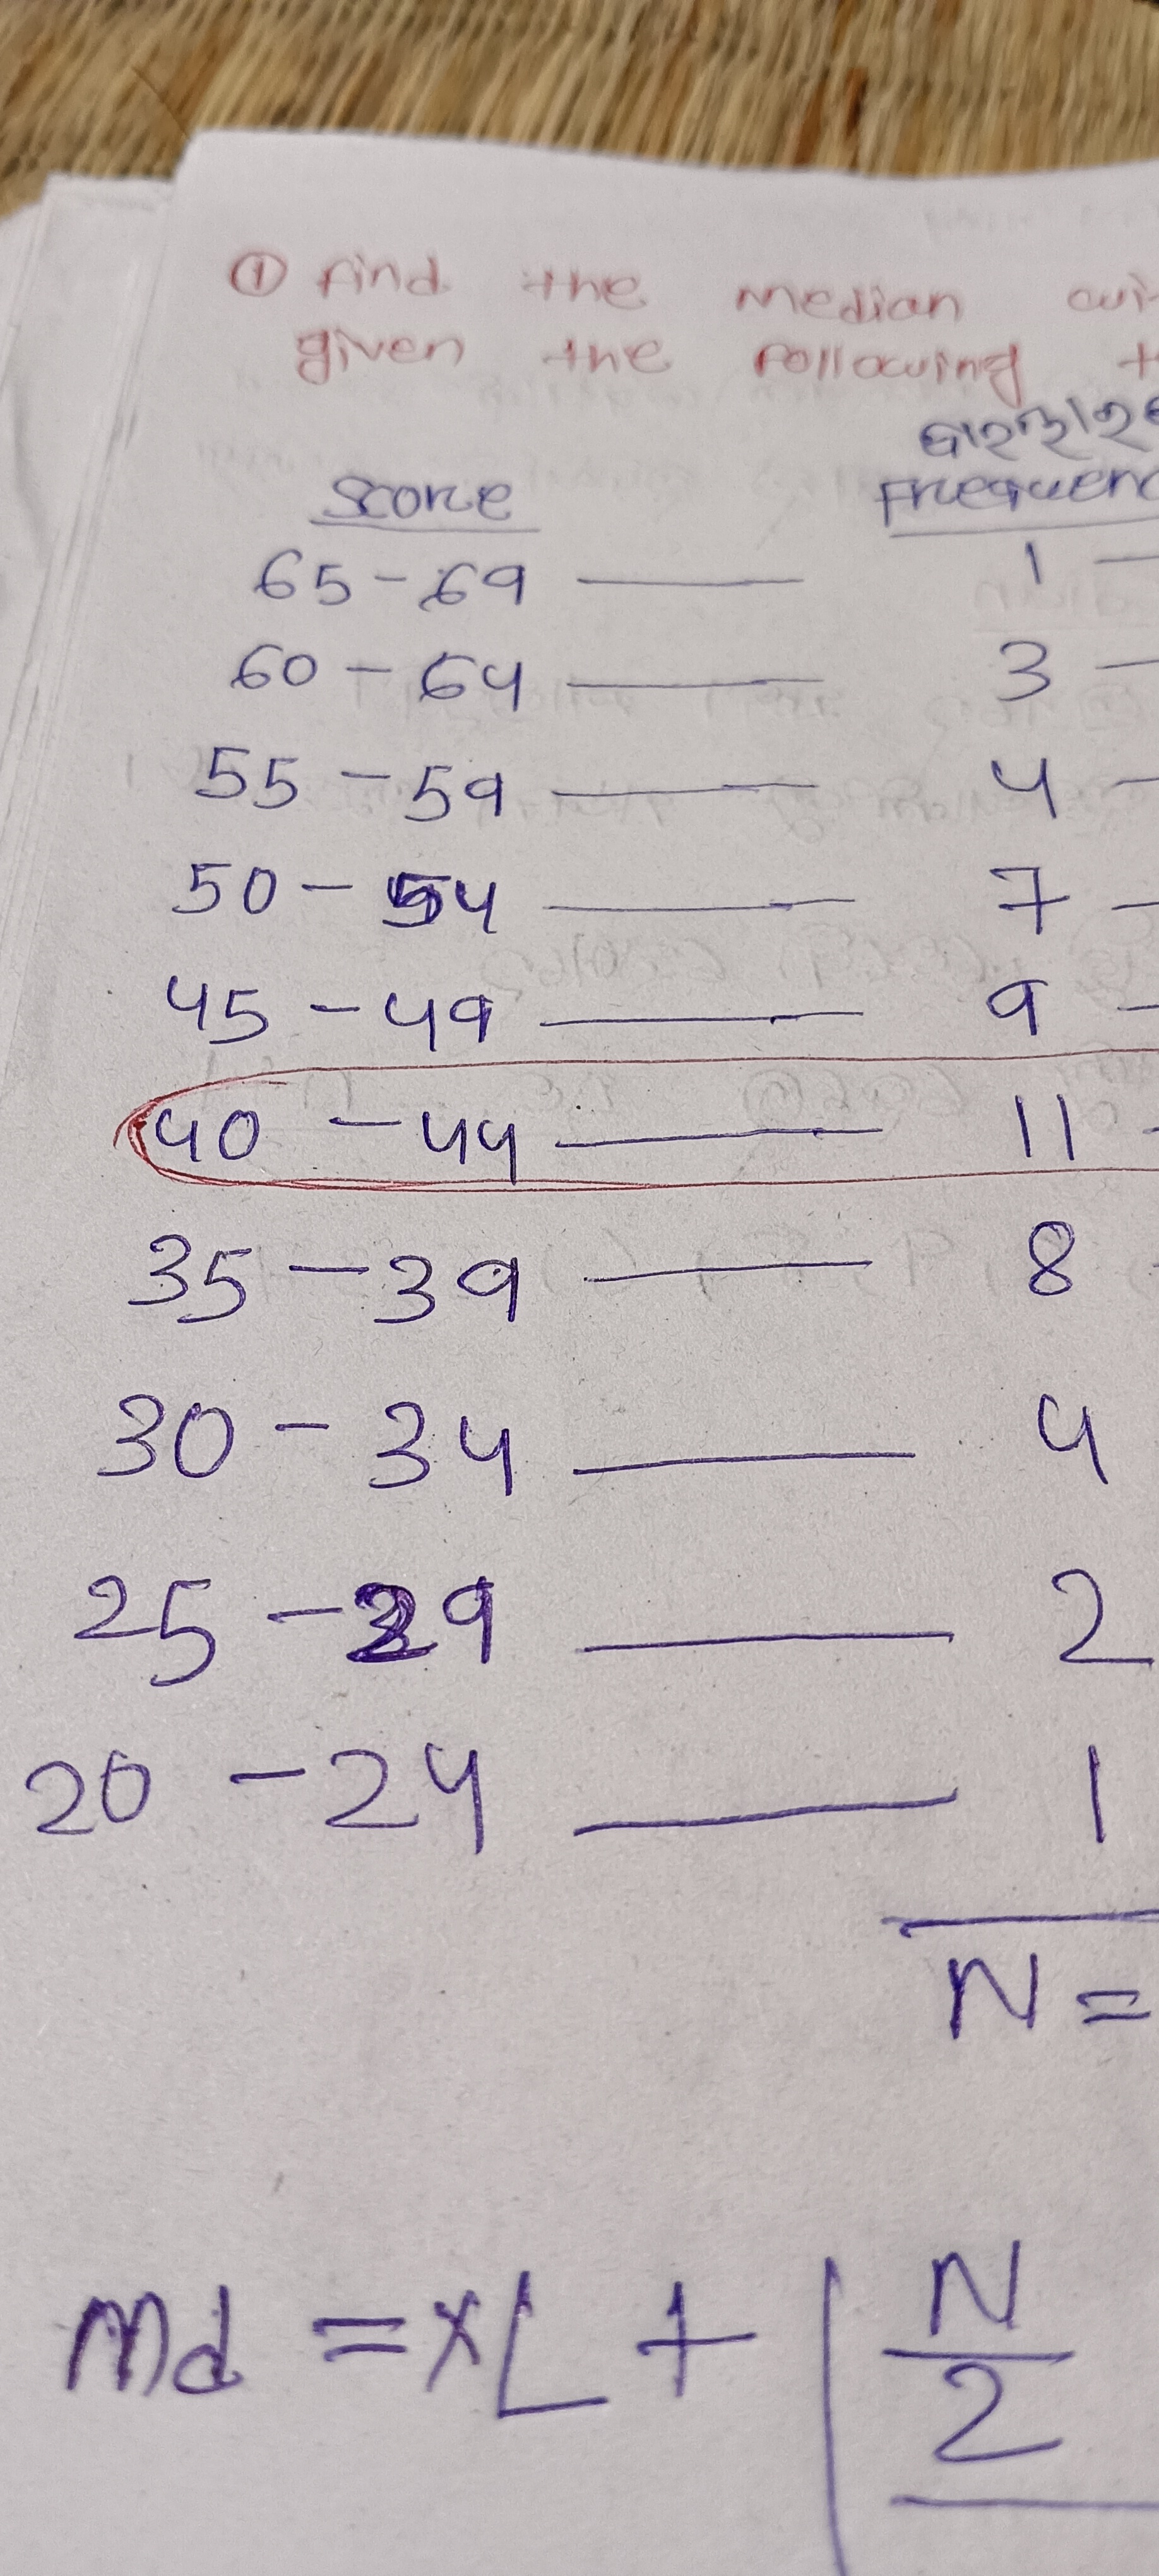 ① Find the Median
given the following
ବାରମ୍ବାର
Score Frequenc
65 - 69 — 1 —
60 - 64 — 3 —
55 - 59 — 4 —
50 - 54 — 7 —
45 - 49 — 9 —
40 - 44 — 11 -
35 - 39 — 8 -
30 - 34 — 4
25 - 29 — 2
20 - 24 — 1
N =
Md = XL + ( N
2